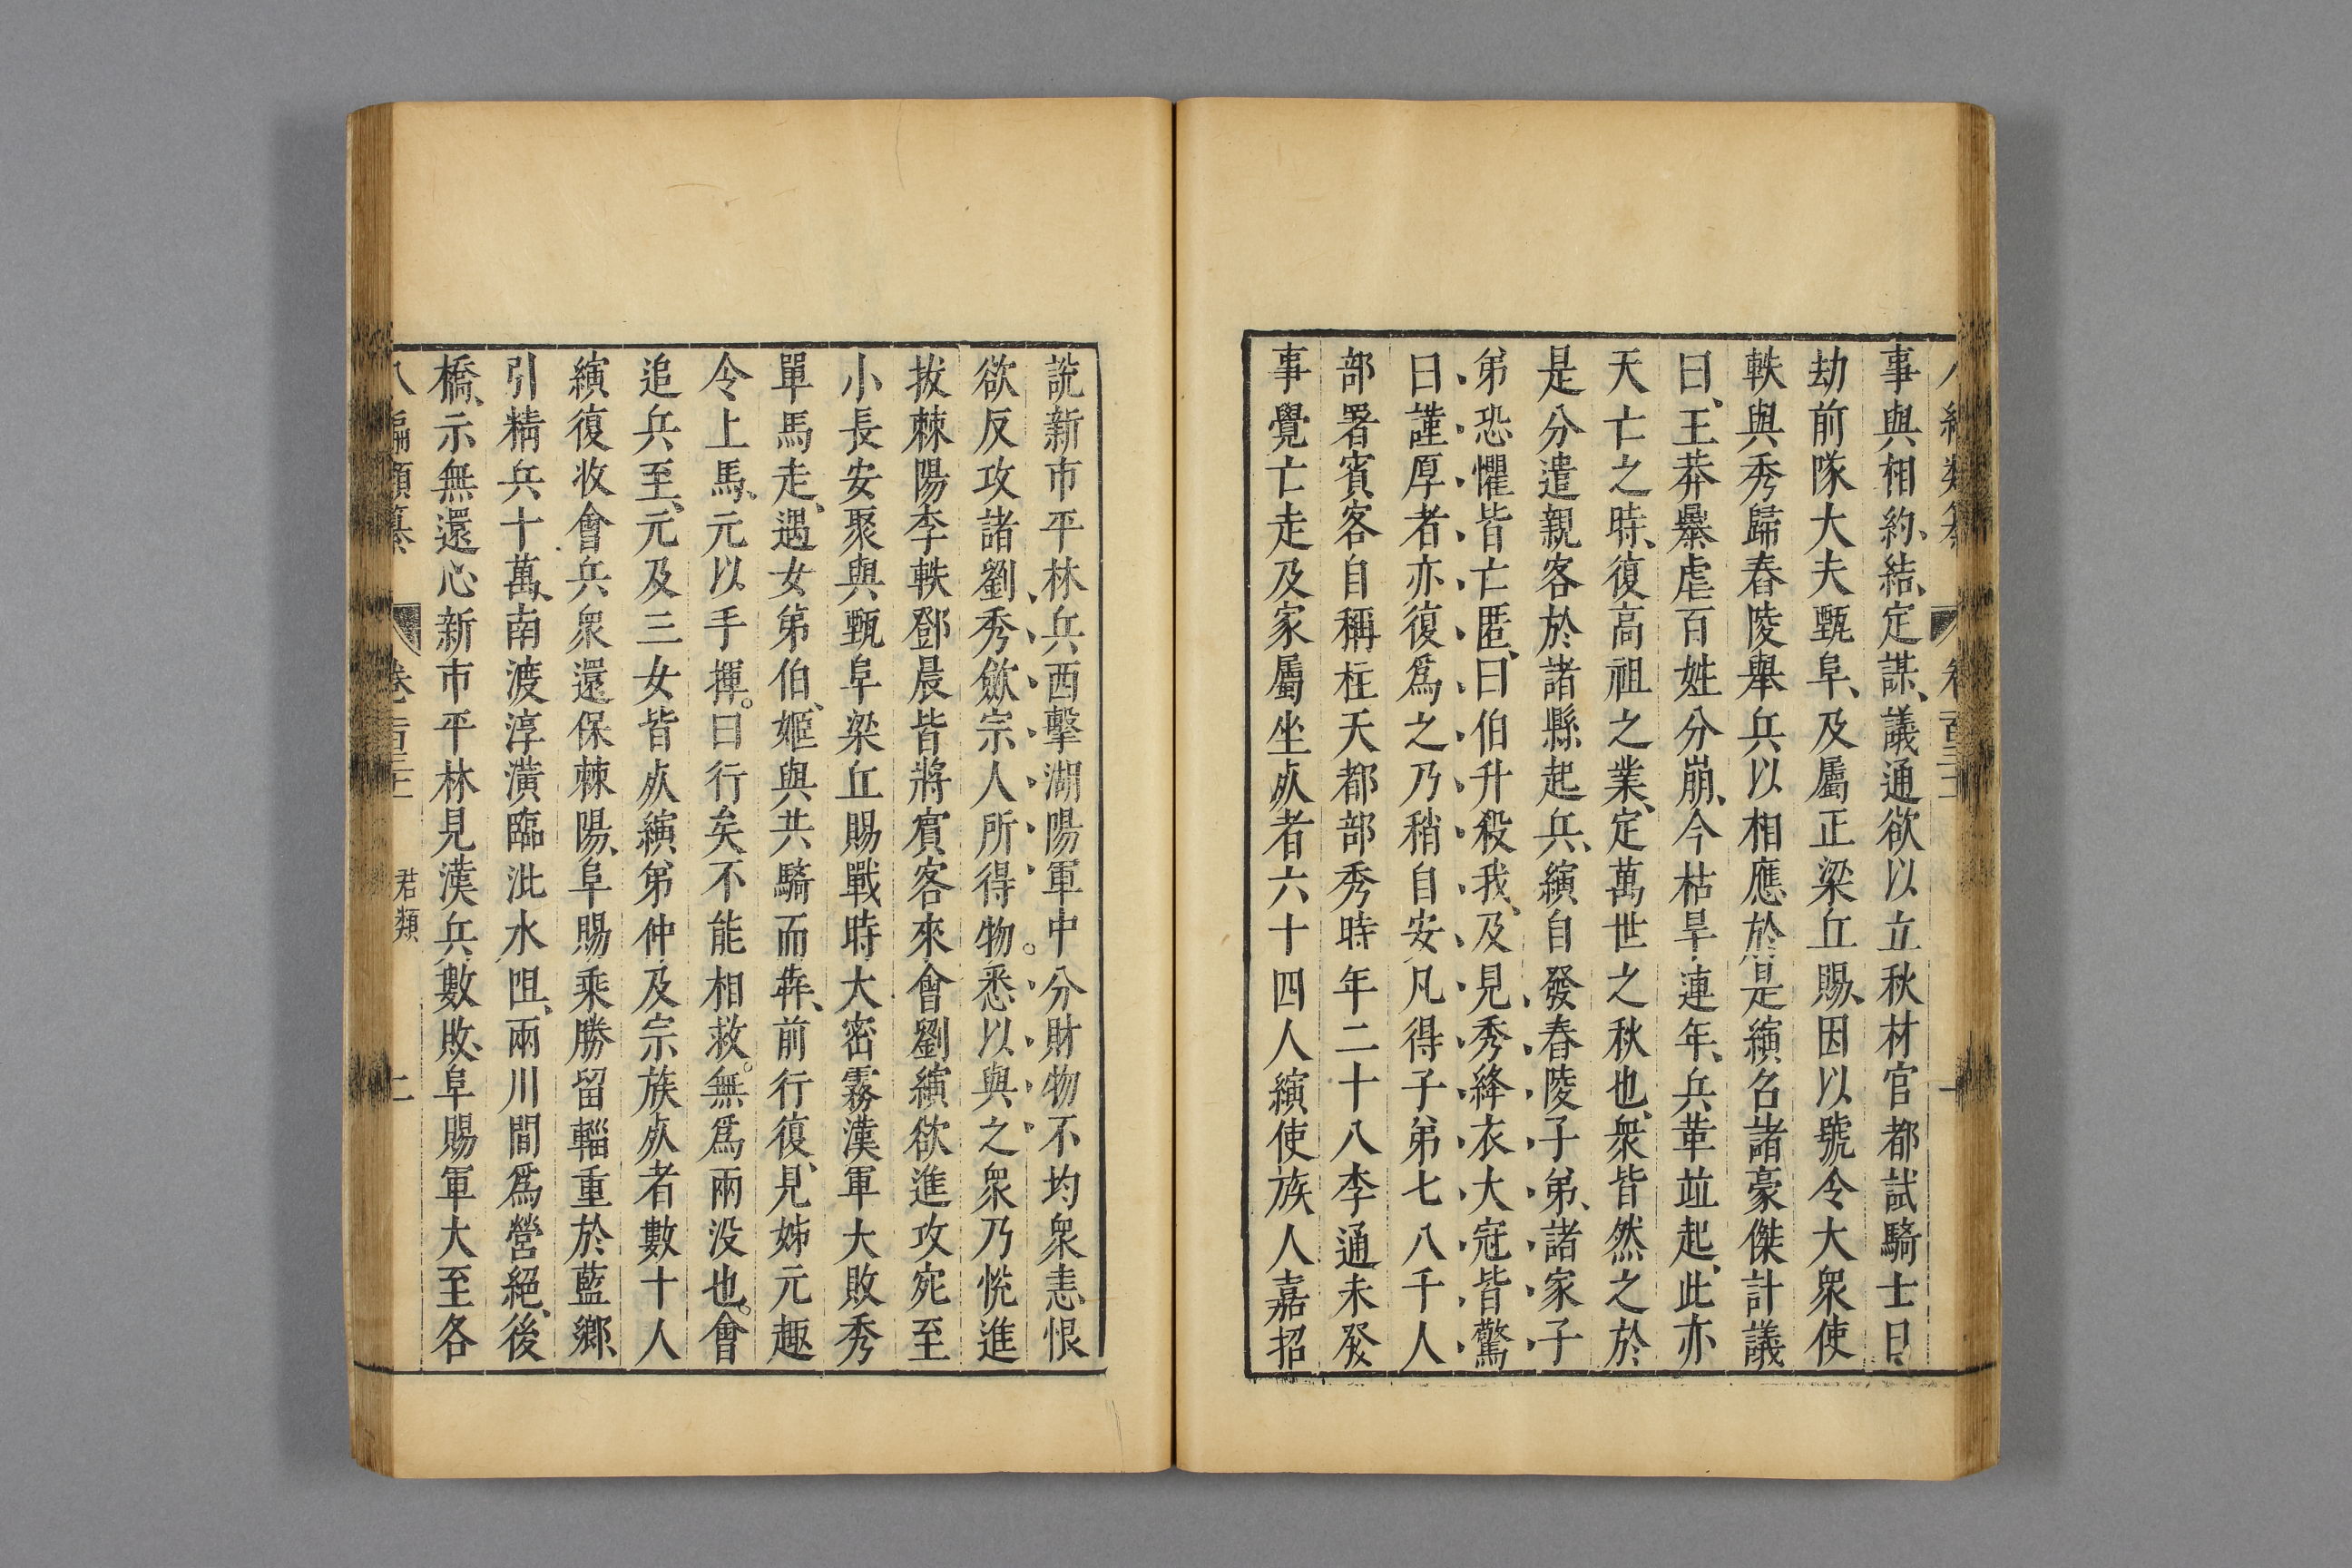 八編類纂 卷百三十
事與相約結定謀議通欲以立秋材官都試騎士日
劫前隊大夫甄阜及屬正梁丘賜因以號令大衆使
軼與秀歸舂陵舉兵以相應於是縯名諸豪傑計議
曰王莽暴虐百姓分崩今枯旱連年兵革竝起此亦
天亡之時復高祖之業定萬世之秋也衆皆然之於
是分遣親客於諸縣起兵縯自發舂陵子弟諸家子
弟恐懼皆亡匿曰伯升殺我及見秀絳衣大冠皆驚
曰謹厚者亦復爲之乃稍自安凡得子弟七八千人
部署賓客自稱柱天都部秀時年二十八李通未發
事覺亡走及家屬坐死者六十四人縯使族人嘉招
說新市平林兵西擊湖陽軍中分財物不均衆恚恨
欲反攻諸劉秀歛宗人所得物悉以與之衆乃悅進
拔棘陽李軼鄧晨皆將賓客來會劉縯欲進攻宛至
小長安聚與甄阜梁丘賜戰時大密霧漢軍大敗秀
單馬走遇女弟伯姬與共騎而犇前行復見姊元趣
令上馬元以手揮曰行矣不能相救無爲兩没也會
追兵至元及三女皆死縯弟仲及宗族死者數十人
縯復收會兵衆還保棘陽阜賜乘勝留輜重於藍鄉
引精兵十萬南渡淳潢臨沘水阻兩川間爲營絕後
橋示無還心新市平林見漢兵數敗阜賜軍大至各
八編類纂 卷百三十 君類 二